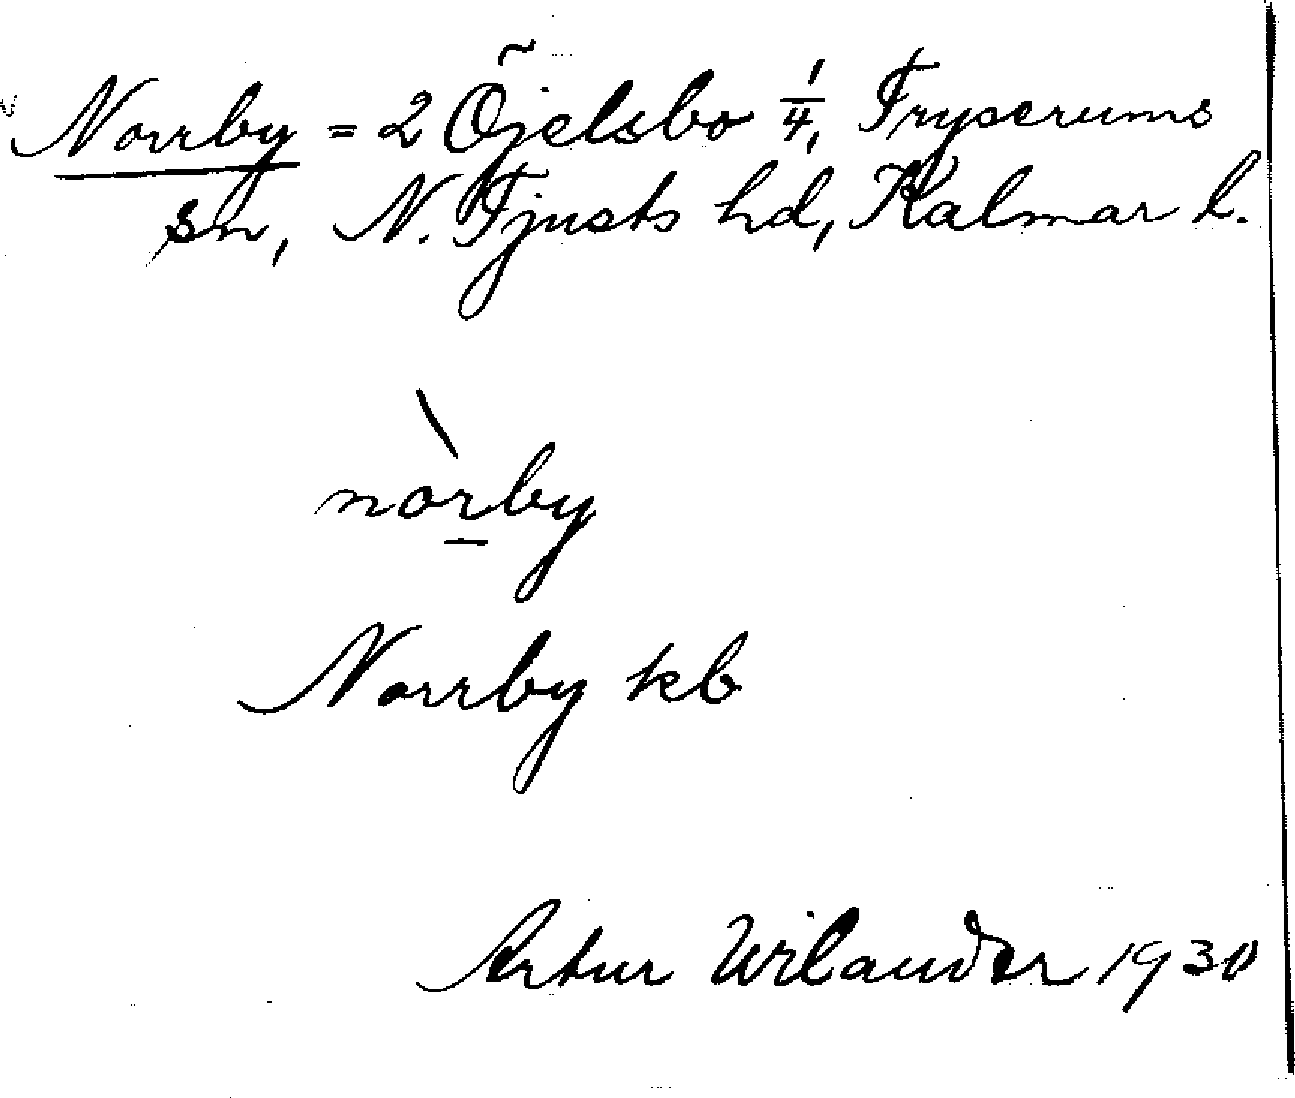 Norrby = 2 Öjelsbo 1/4, Tryserums
sn, N. Tjusts hd, Kalmar l.
nòrby
Norrby kb
Artur Wilander 1930